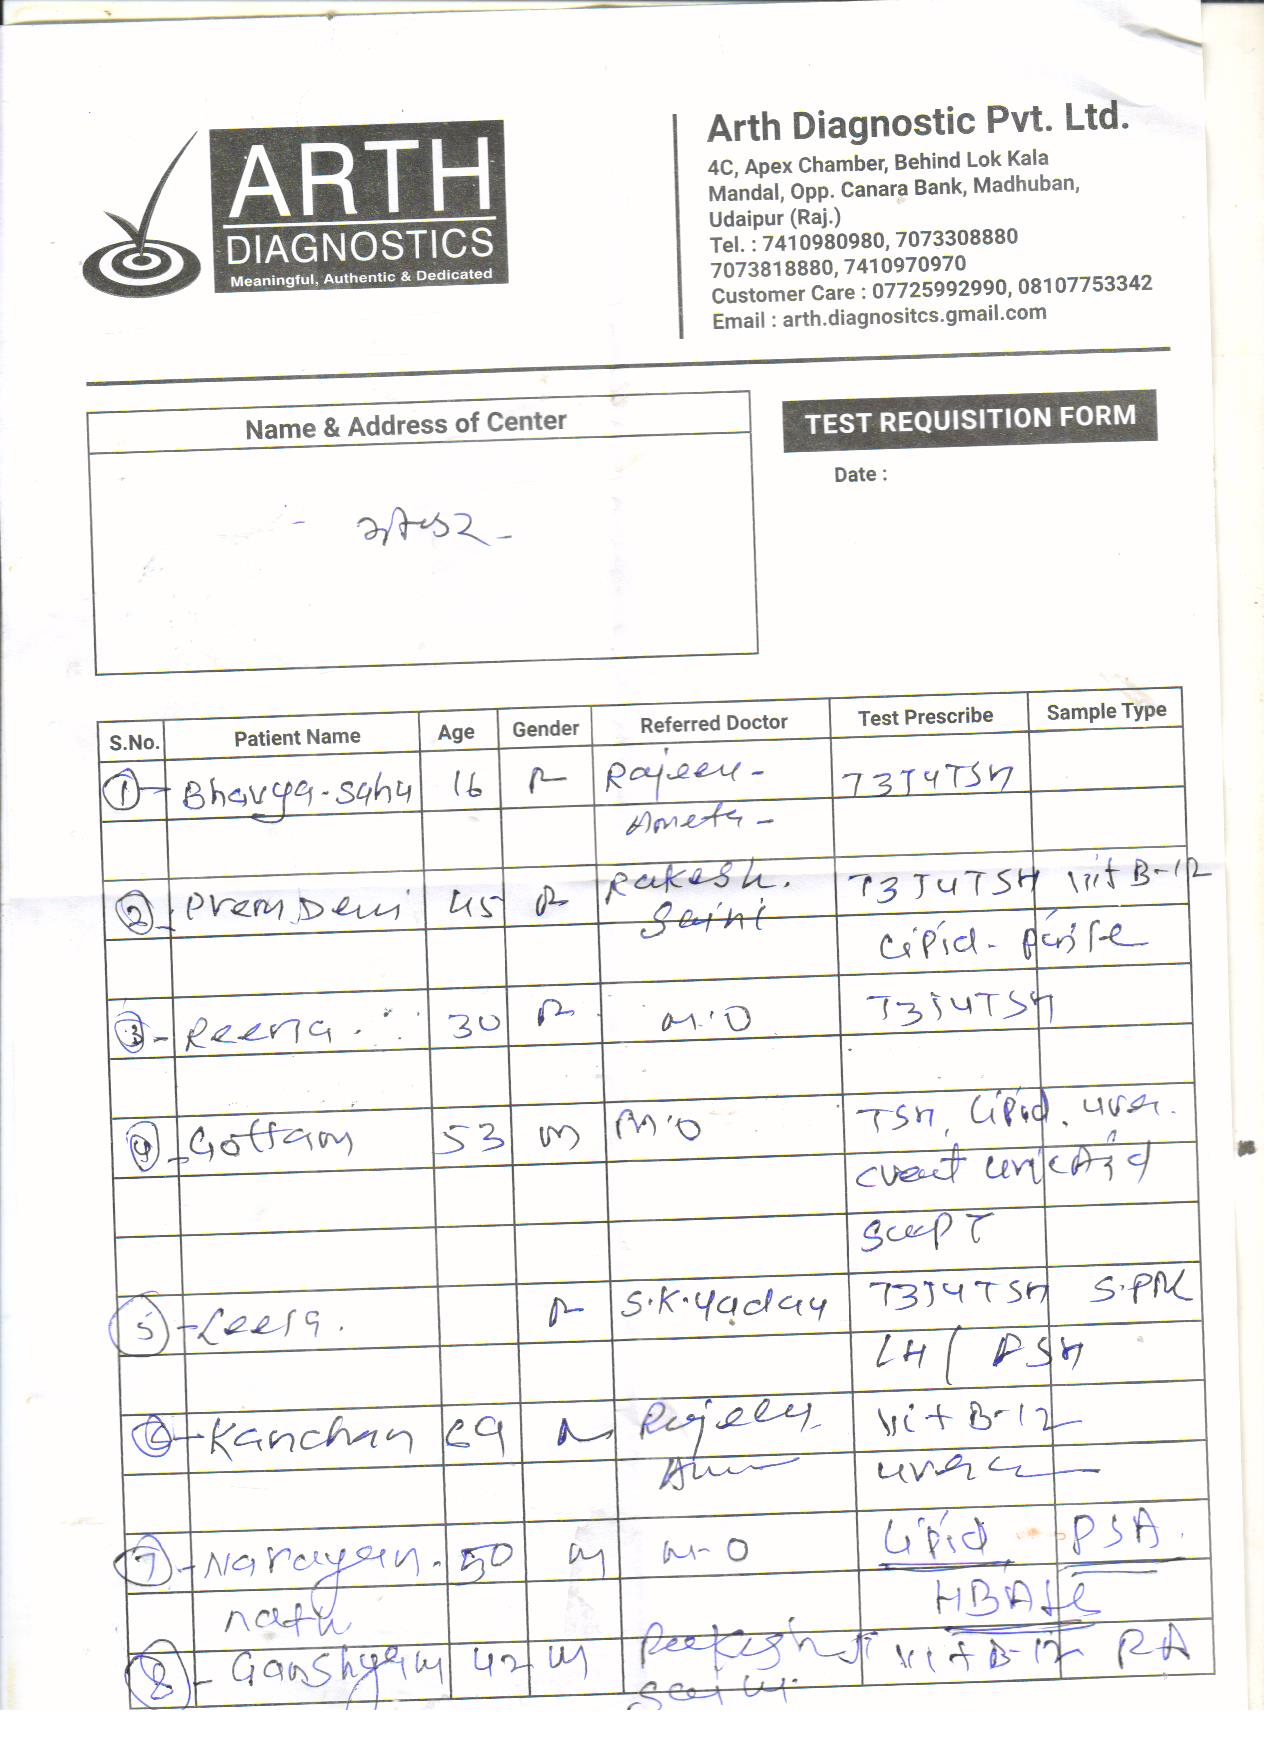 ARTH
DIAGNOSTICS
Meaningful, Authentic & Dedicated
Arth Diagnostic Pvt. Ltd.
4C, Apex Chamber, Behind Lok Kala
Mandal, Opp. Canara Bank, Madhuban,
Udaipur (Raj.)
Tel. : 7410980980, 7073308880
7073818880, 7410970970
Customer Care : 07725992990, 08107753342
Email : arth.diagnositcs.gmail.com
Name & Address of Center
TEST REQUISITION FORM
Date :
S.No. Patient Name Age Gender Referred Doctor Test Prescribe Sample Type
1 - Bhavya - Sahu 16 F Rajeev - T3T4TSH
Ameta -
2 - Prem Devi 45 F Rakesh. T3T4TSH Vit B-12
Saini Lipid -
3 - Reena 30 F M.O T3T4TSH
4 - Gottam 53 M M.O TSH, Lipid, urea.
creat uric Acid
SGOPT
5 - Leela. F S.K.Yadav T3T4TSH S.PRL
LH / FSH
6 - Kanchan 69 Rajeev Vit B-12
urea
7 - Narayan. 50 M M-O Lipid PSA.
nath HBA1c
8 - Ganshyam 42 M Rakesh Ji Vit B-12 RA
Saini